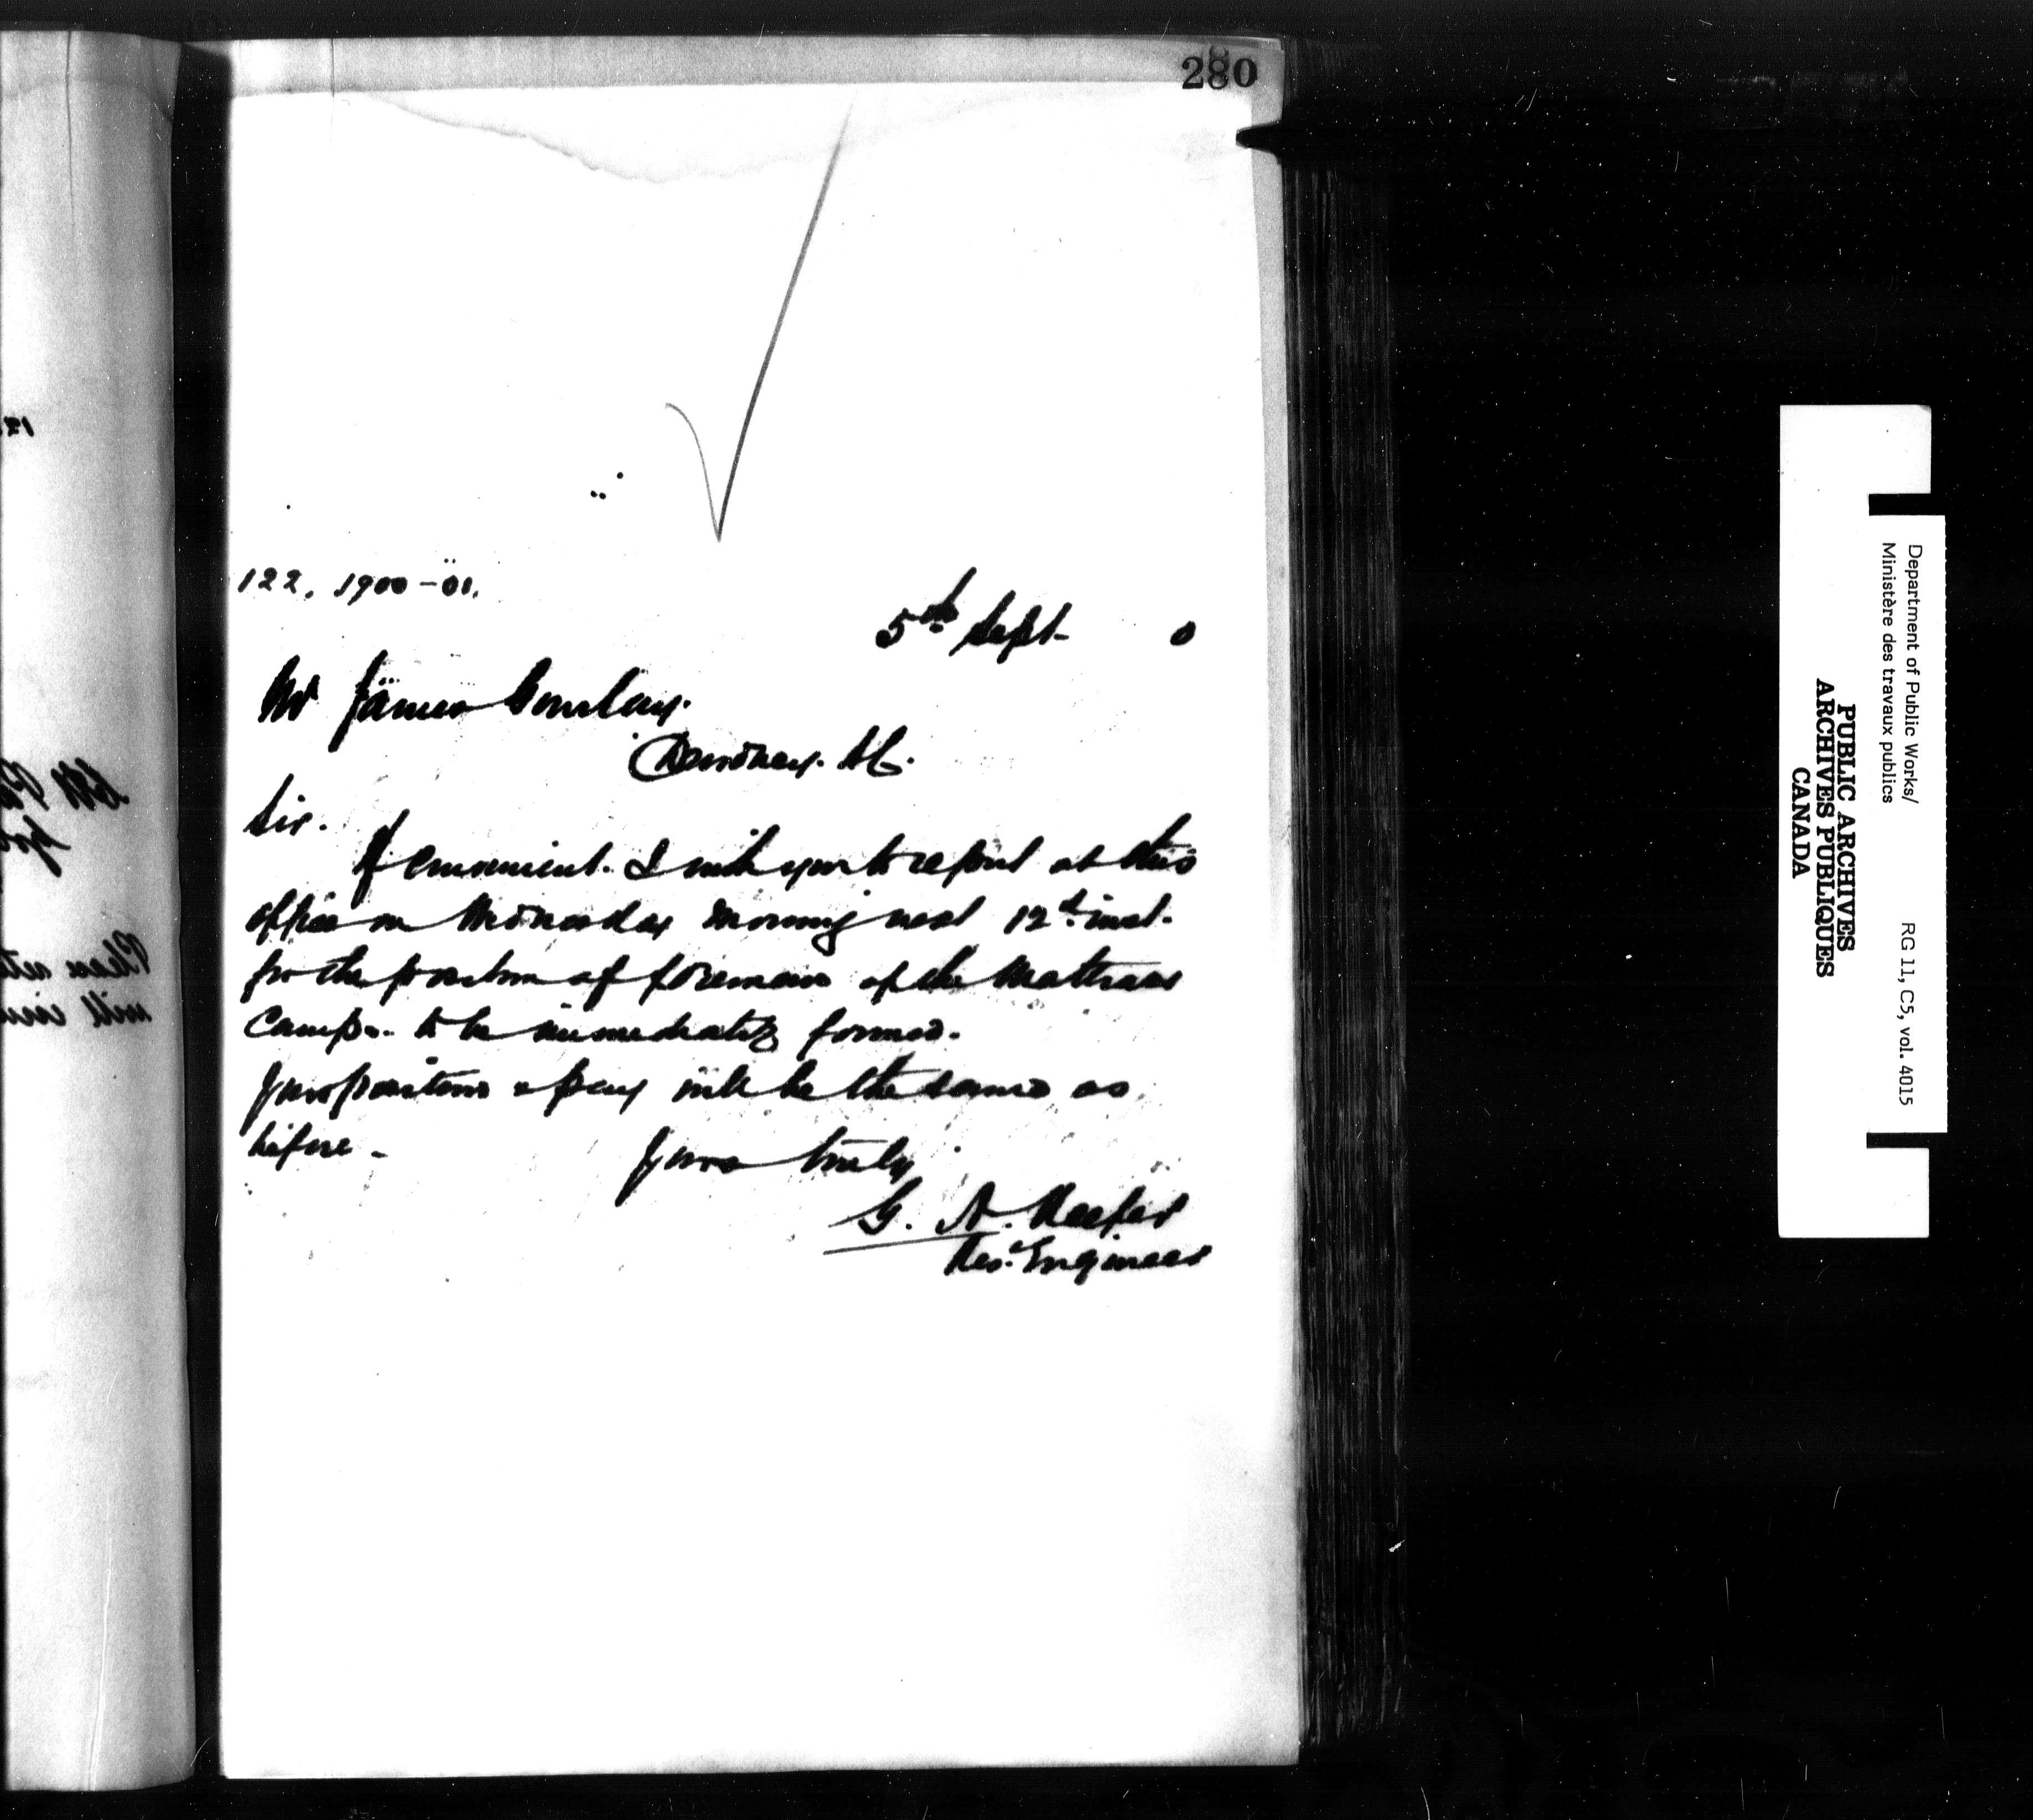 280
122. 1900-01.
5th Sept 0
Mr James Gourlay.
Dewdney. B.C.
Sir.
If convenient. I wish you to report at this
office on morning next 12th inst.
for the position of foreman of the Mattrass
Camp. to be immediately formed.
Your position & pay will be the same as
before.
Yours truly
G. A. Keefer
Res. Engineer
Department of Public Works/
Ministère des travaux publics
RG 11, C5, vol. 4015
PUBLIC ARCHIVES
ARCHIVES PUBLIQUES
CANADA